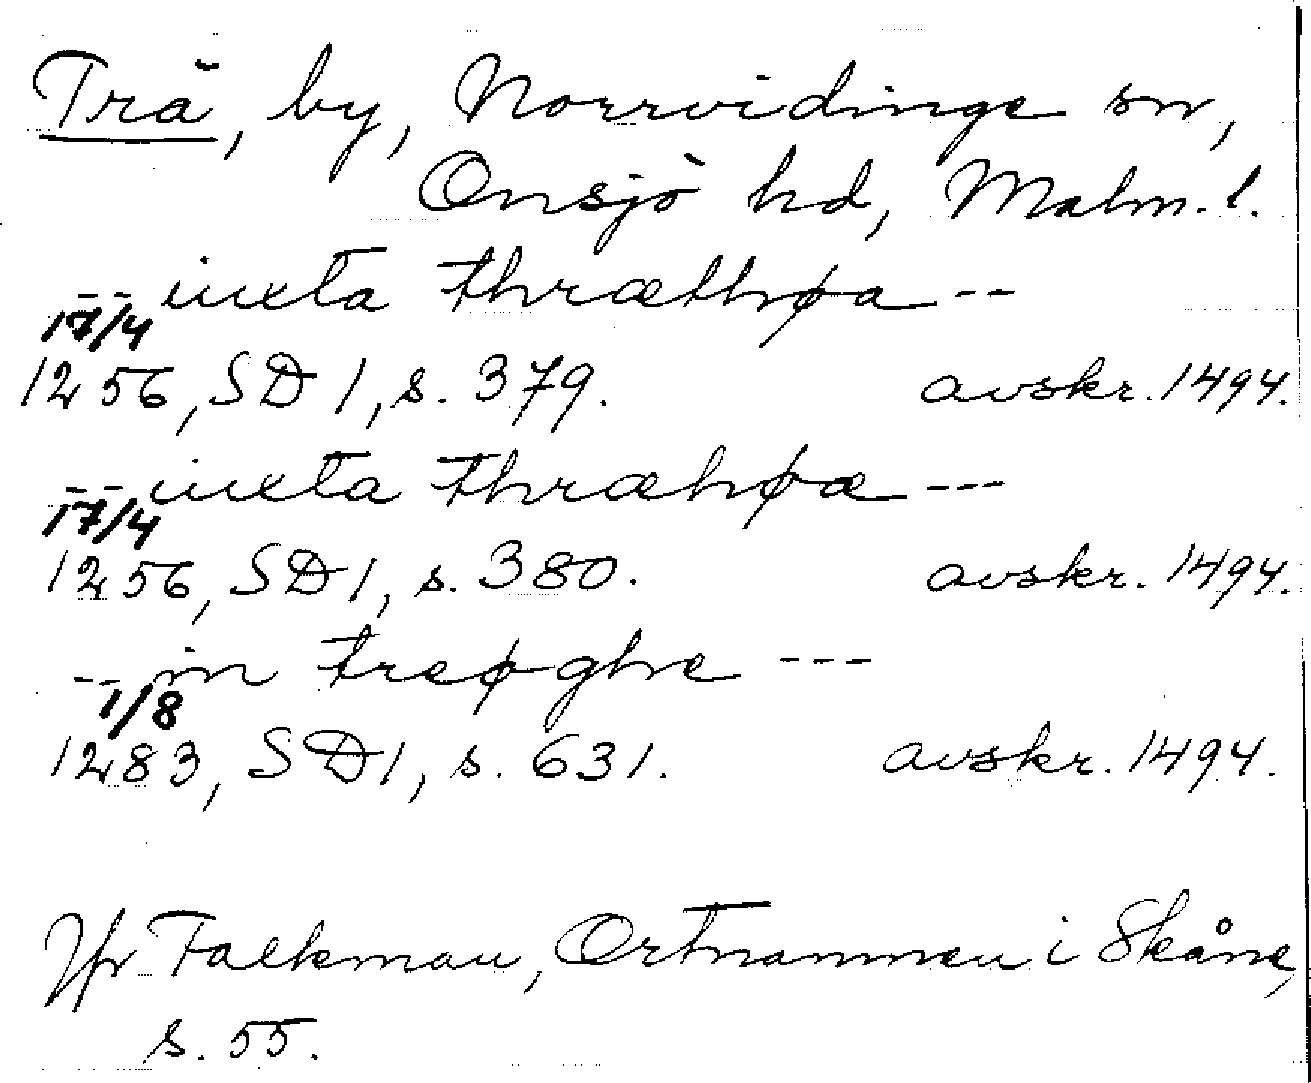 Trä, by, Norrvidinge sn,
Onsjö hd, Malm. l.
-- iuxta thræthøa --
17/4
1256, SD 1, s. 379. avskr. 1494.
-- iuxta thræhøæ ---
17/4
1256, SD 1, s. 380. avskr. 1494.
-- in treøghe ---
1/8
1283, SD 1, s. 631. avskr. 1494.
Jfr Falkman, Ortnamnen i Skåne,
s. 55.